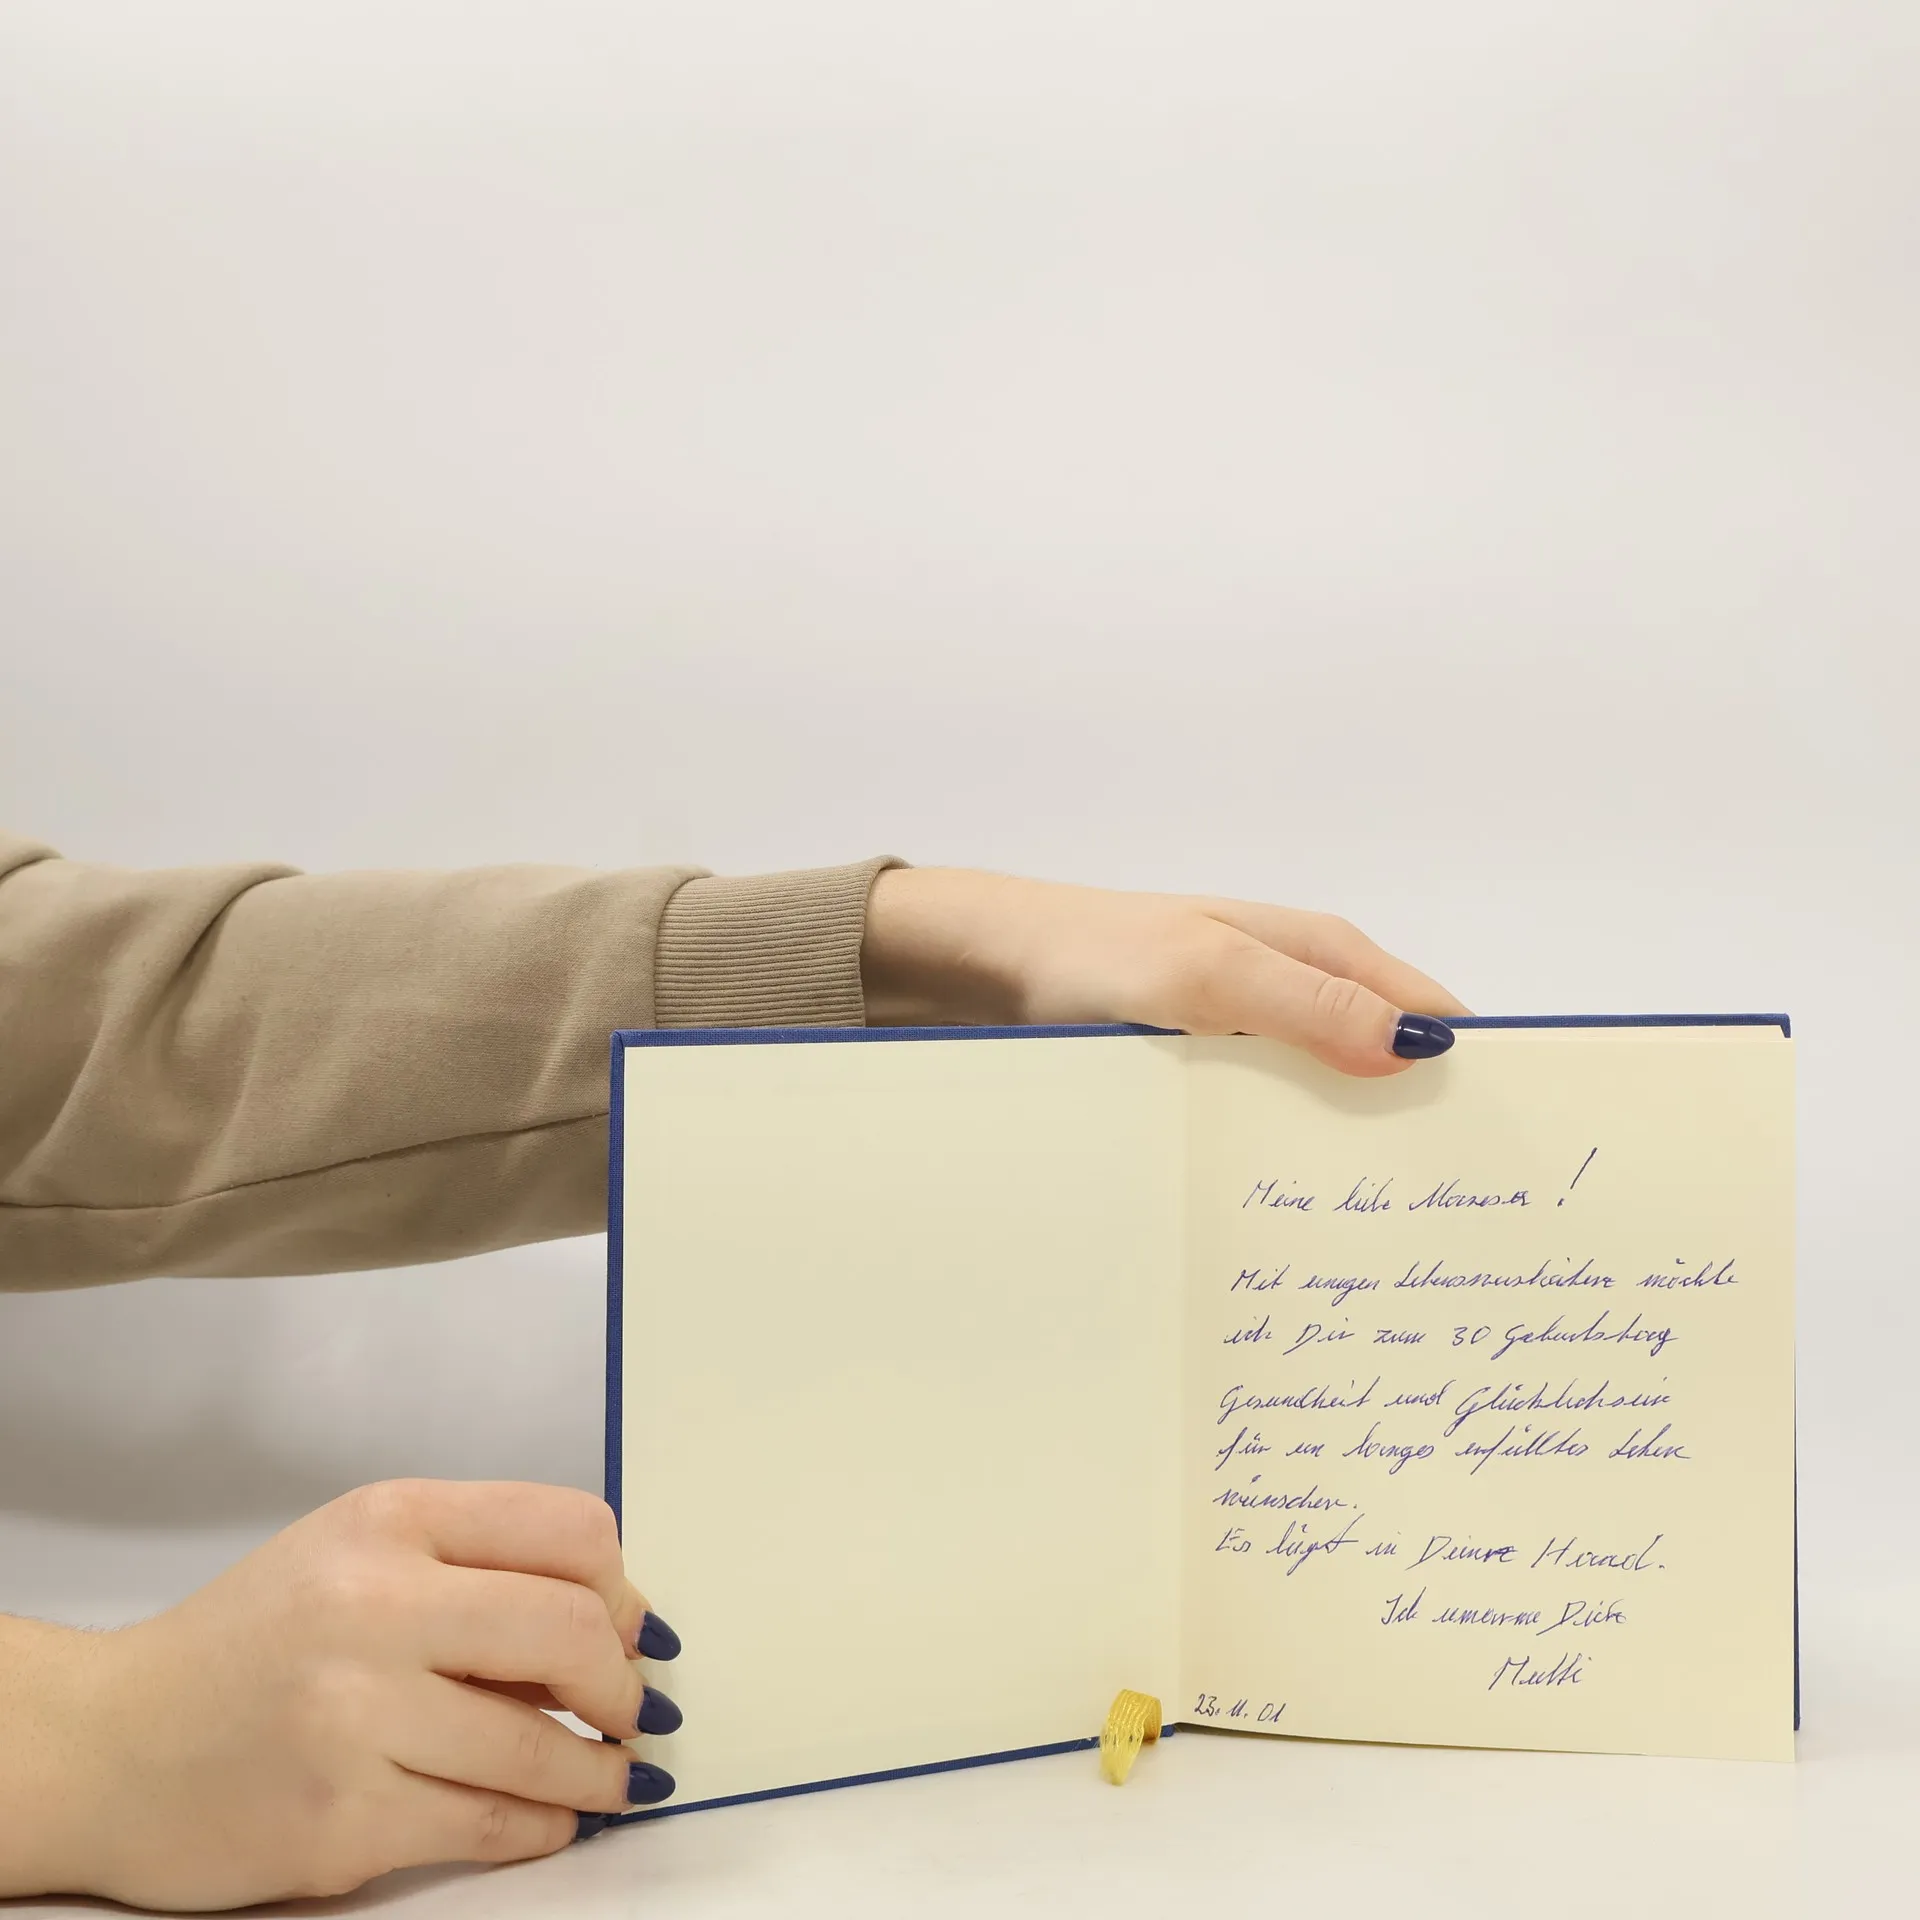 Meine liebe
!
Mit einigen Lebensweisheiten möchte
ich Dir zum 30 Geburtstag
Gesundheit und Glücklichsein
für ein langes erfülltes Leben
wünschen.
Es liegt in Deiner Hand.
Ich umarme Dich
Mutti
23. 11. 01